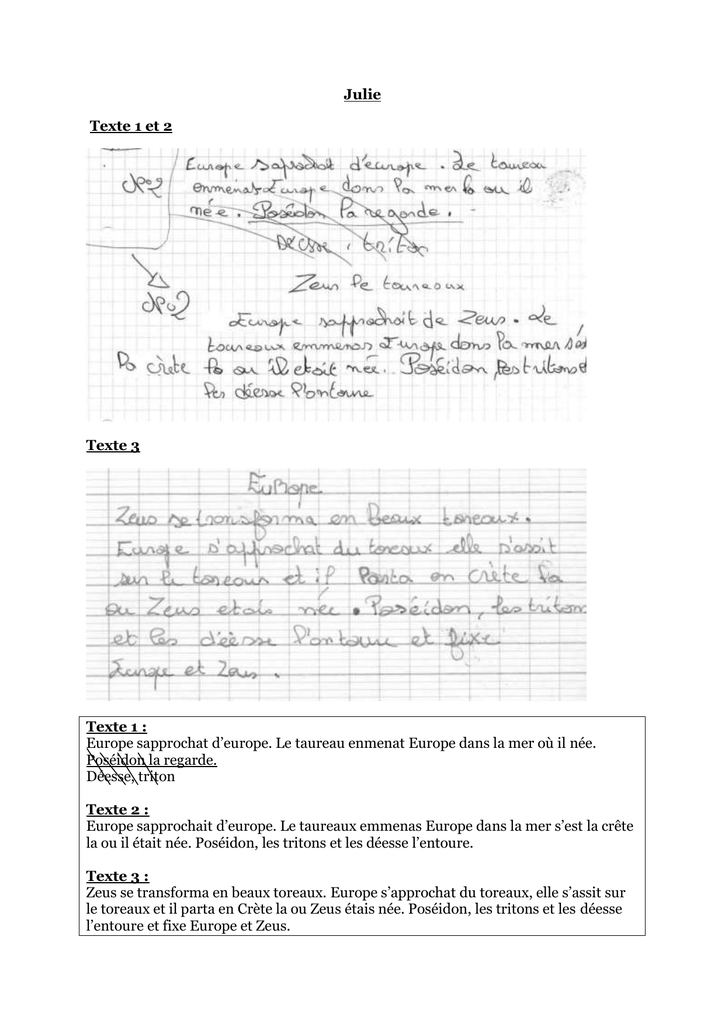 Julie
Texte 1 et 2
Europe saprochat d'europe. Le taureau
N°2
enmenat Europe dans la mer la ou il
née. Poséidon la regarde.
Déesse, triton
Zeus le toureaux
N°2
Europe sapprochait de Zeus. Le
toureaux emmenas Europe dans la mer s'es
la crète la ou il etoit née. Poséidon les tritons et
les déesse l'entoure
Texte 3
EuRope
Zeus se transforma en Beaux toreaux.
Europe s'approchat du toreaux elle s'assit
sur le toreaux et il Parta en Crète la
ou Zeus etais née. Poséidon, les tritons
et les déesse l'entoure et fixe
Europe et Zeus.
Texte 1 :
Europe sapprochat d'europe. Le taureau enmenat Europe dans la mer où il née.
Poséidon la regarde.
Déesse, triton
Texte 2 :
Europe sapprochait d'europe. Le taureaux emmenas Europe dans la mer s'est la crête
la ou il était née. Poséidon, les tritons et les déesse l'entoure.
Texte 3 :
Zeus se transforma en beaux toreaux. Europe s'approchat du toreaux, elle s'assit sur
le toreaux et il parta en Crète la ou Zeus étais née. Poséidon, les tritons et les déesse
l'entoure et fixe Europe et Zeus.